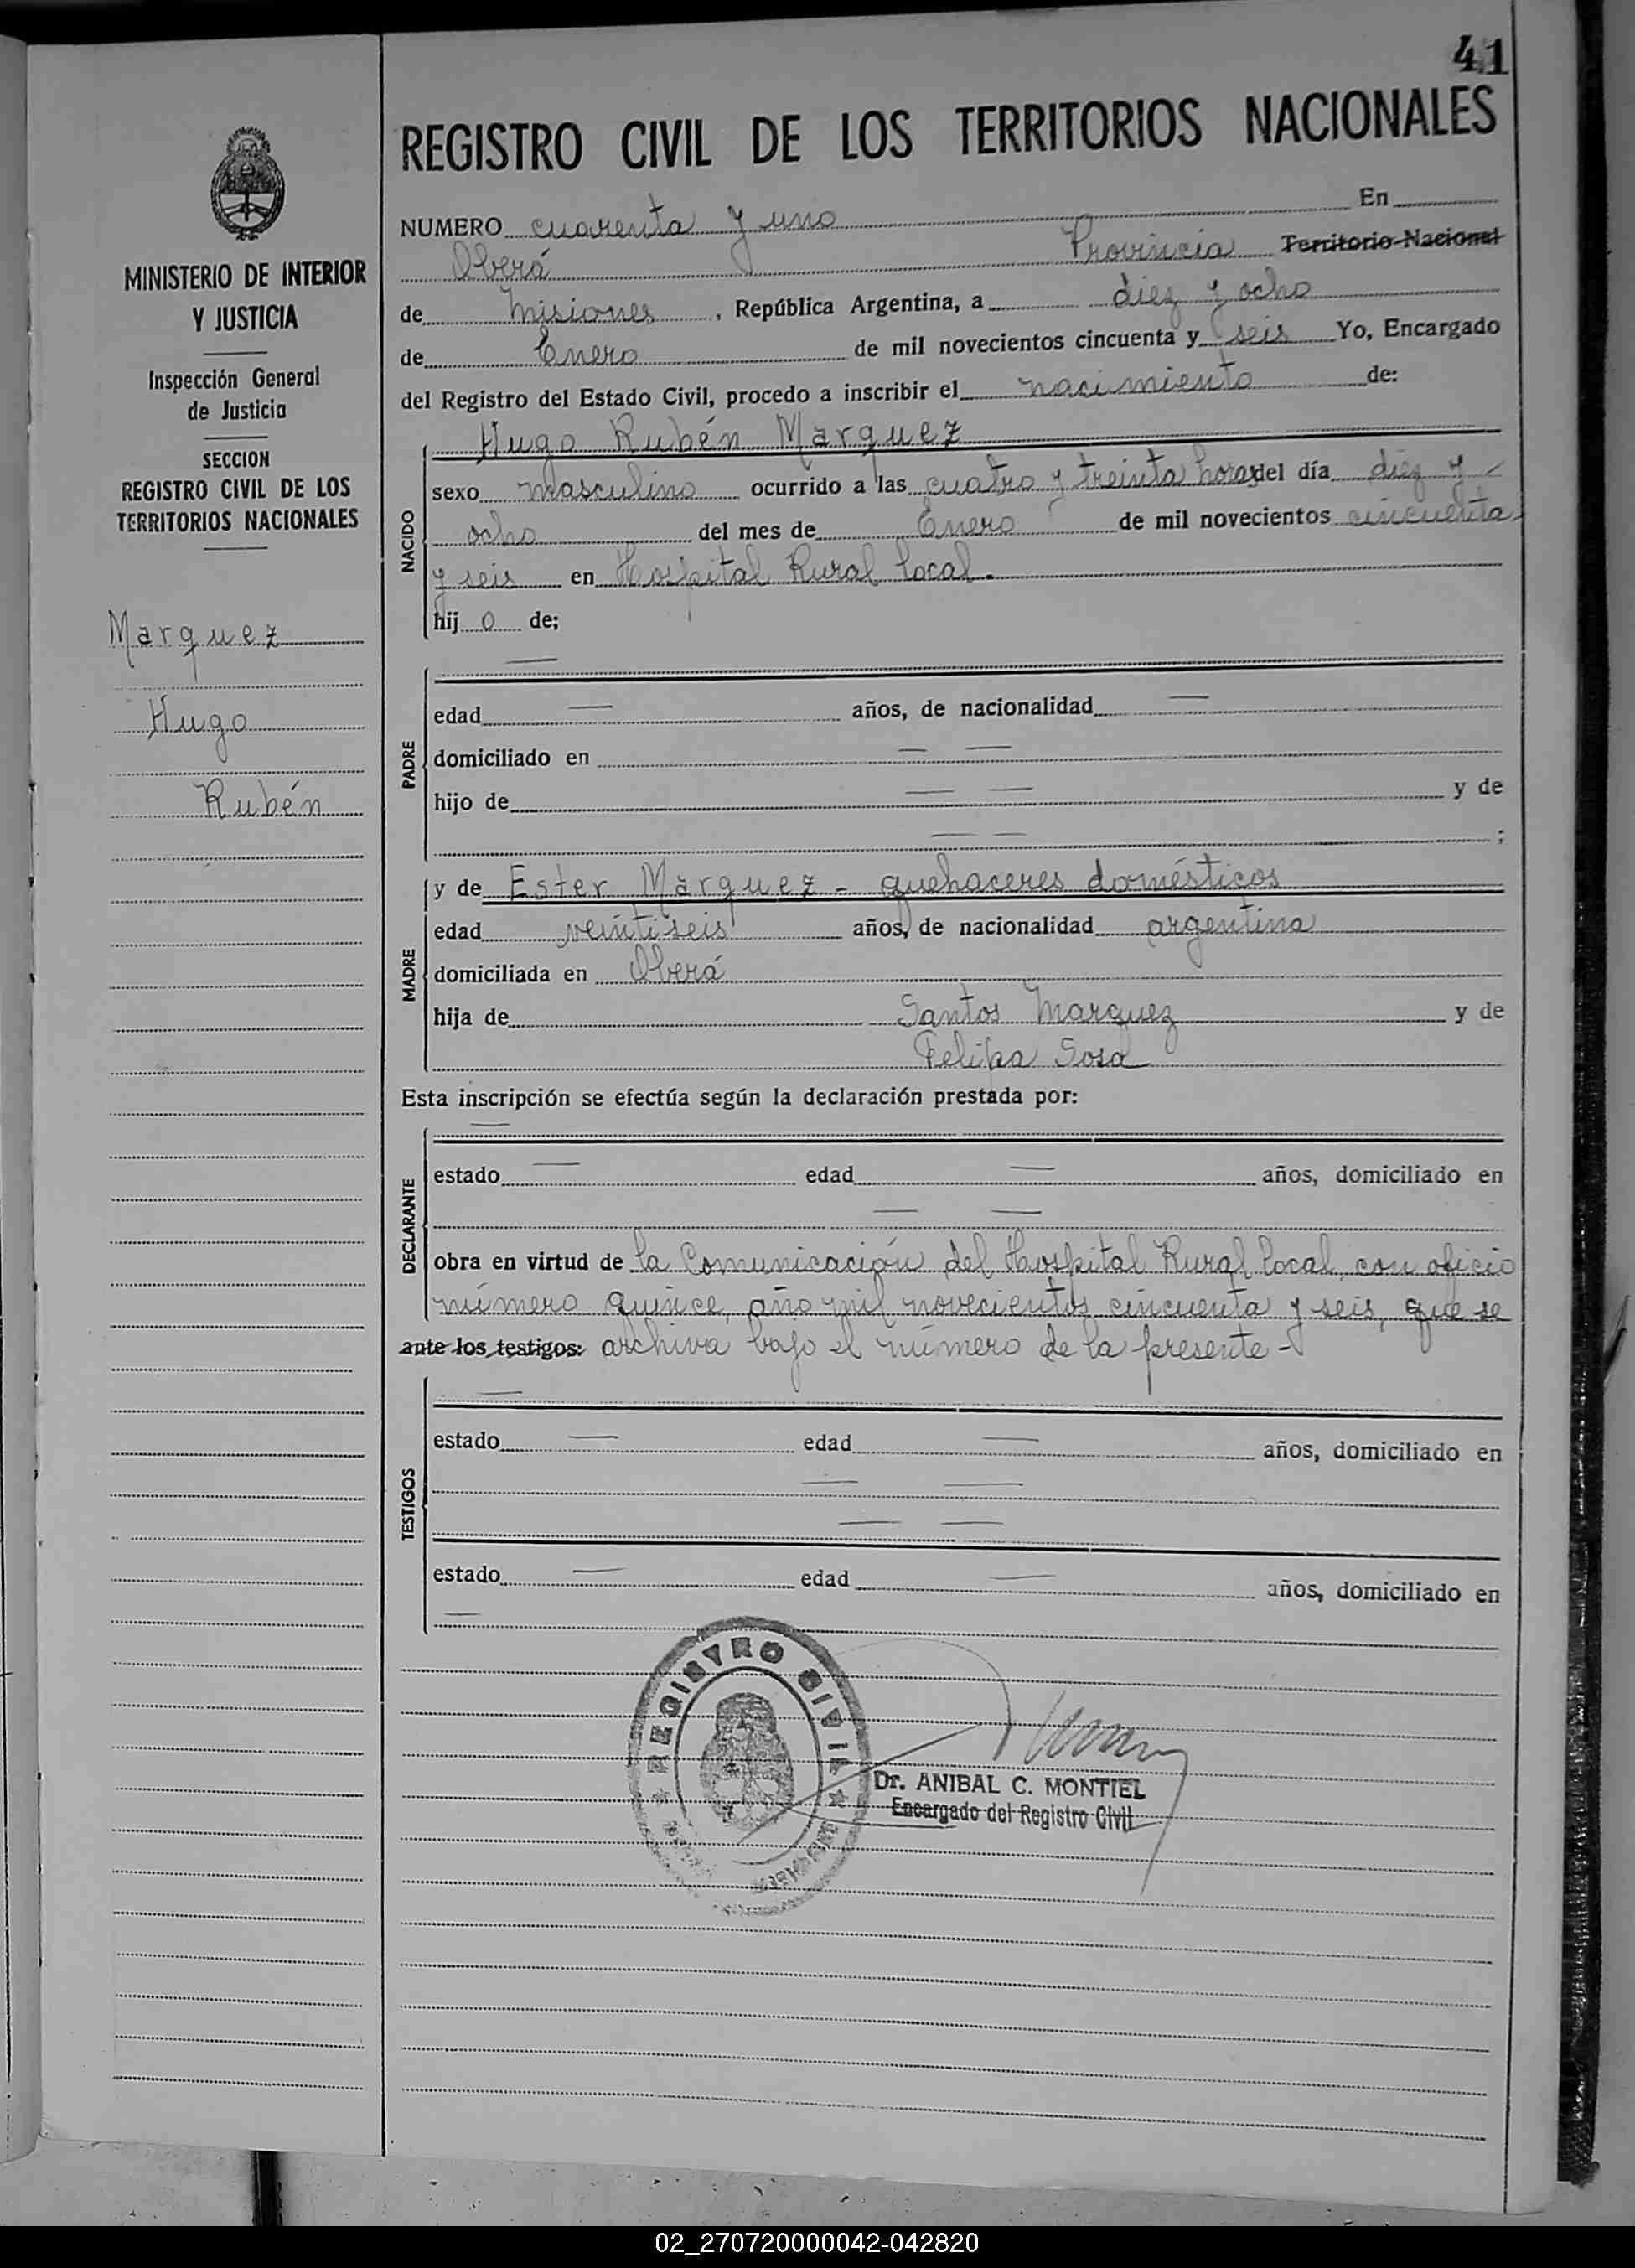 41
REGISTRO CIVIL DE LOS TERRITORIOS NACIONALES
MINISTERIO DE INTERIOR
Y JUSTICIA
Inspección General
de Justicia
SECCION
REGISTRO CIVIL DE LOS
TERRITORIOS NACIONALES
Marquez
Hugo
Rubén
NUMERO cuarenta y uno En
Oberá Provincia Territorio Nacional
de Misiones, República Argentina, a diez y ocho
de Enero de mil novecientos cincuenta y seis Yo, Encargado
del Registro del Estado Civil, procedo a inscribir el nacimiento de:
NACIDO
Hugo Rubén Marquez
sexo masculino ocurrido a las cuatro y treinta horas del día diez y
ocho del mes de Enero de mil novecientos cincuenta
y seis en Hospital Rural local.
hij o de;
PADRE
—
edad — años, de nacionalidad —
domiciliado en — —
hijo de — — y de
— — ;
MADRE
y de Ester Marquez - quehaceres domésticos
edad veintiseis años, de nacionalidad argentina
domiciliada en Oberá
hija de Santos Marquez y de
Felipa Sosa
Esta inscripción se efectúa según la declaración prestada por:
DECLARANTE
—
estado — edad — años, domiciliado en
— —
obra en virtud de la Comunicación del Hospital Rural local, con oficio
número quince, año mil novecientos cincuenta y seis, que se
ante los testigos: archiva bajo el número de la presente -
TESTIGOS
—
estado — edad — años, domiciliado en
— —
— —
estado — edad — años, domiciliado en
—
REGISTRO CIVIL
Dr. ANIBAL C. MONTIEL
Encargado del Registro Civil
02_270720000042-042820